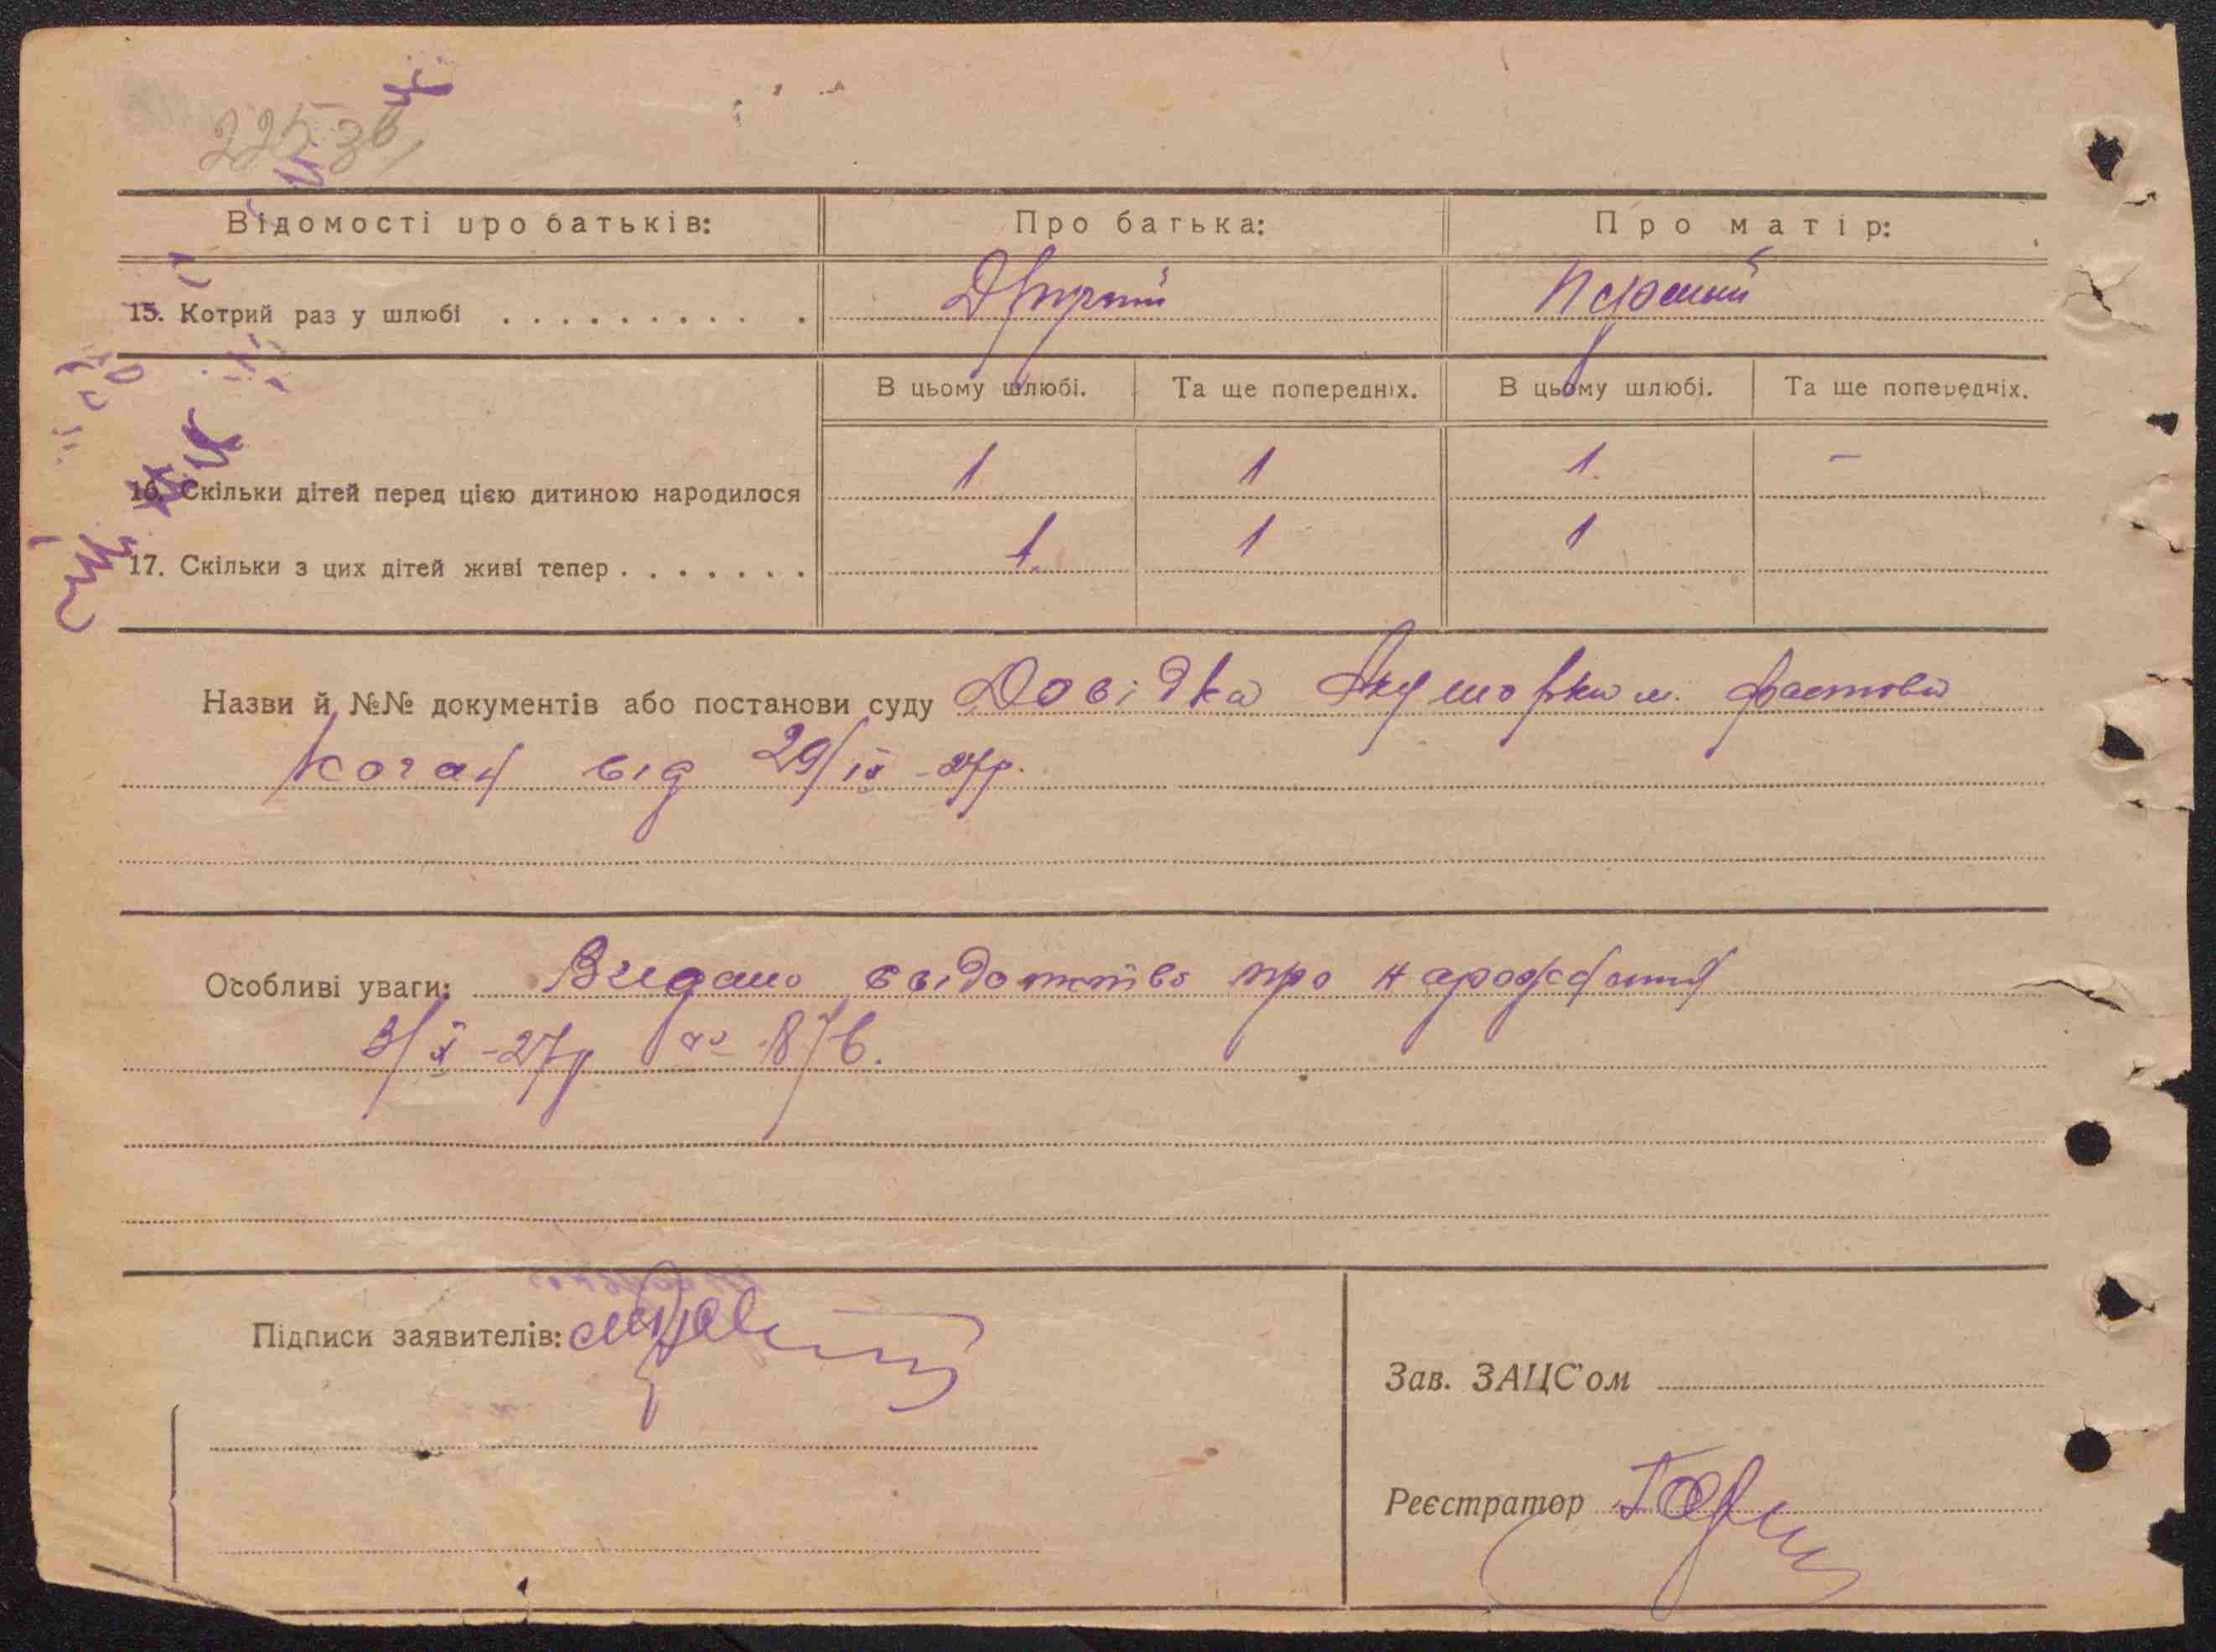 Відомості про батьків: Про батька: Про матір:
15. Котрий раз у шлюбі . . . . . . . . . . Другий Перший
В цьому шлюбі. Та ще попередніх. В цьому шлюбі. Та ще попередніх.
16. Скільки дітей перед цією дитиною народилося 1 1 1. –
17. Скільки з цих дітей живі тепер . . . . . . . 1. 1 1
Назви й №№ документів або постанови суду Довідка Акушорки м. Фастова
Коган від 29/ІХ -27р.
Особливі уваги: Видано свідоттво про народження
3/Х -27р за 876.
Підписи заявителів:
Зав. ЗАЦС'ом
Реєстратор